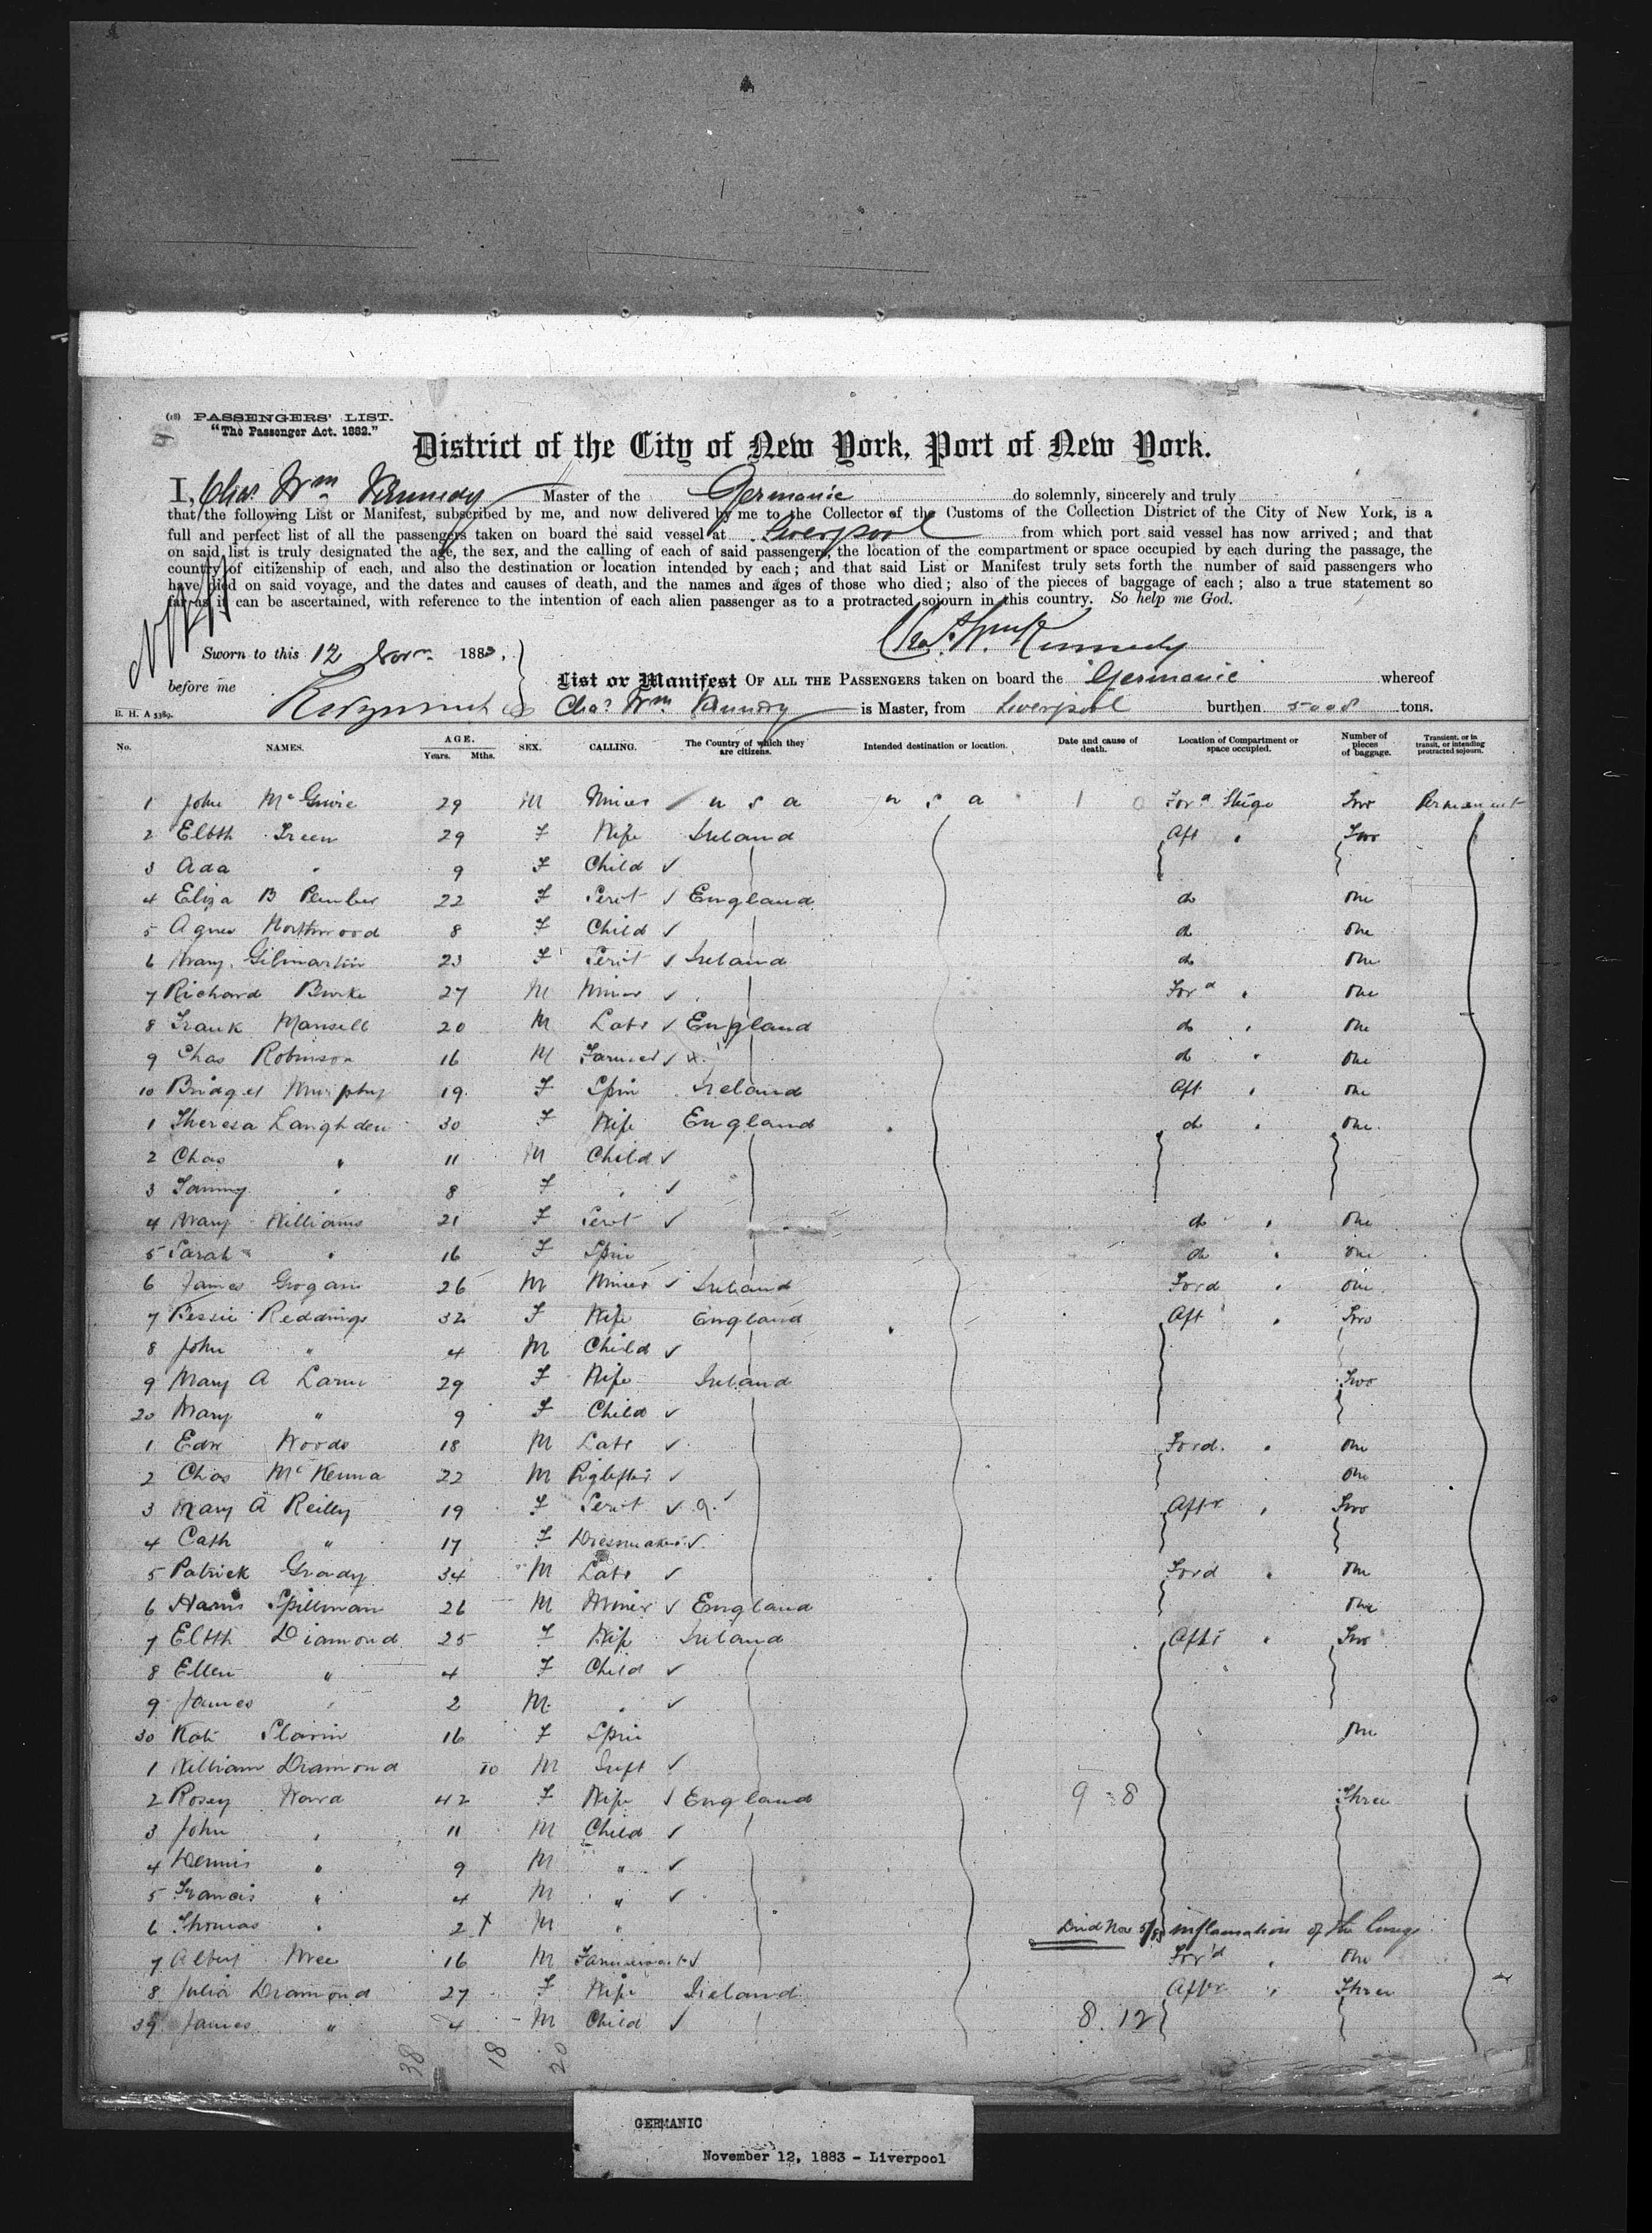 (18) PASSENGERS' LIST.
"The Passenger Act. 1882."
District of the City of New York, Port of New York.
I, Chas Wm Kennedy Master of the Germanic do solemnly, sincerely and truly
that the following List or Manifest, subscribed by me, and now delivered by me to the Collector of the Customs of the Collection District of the City of New York, is a
full and perfect list of all the passengers taken on board the said vessel at Liverpool from which port said vessel has now arrived; and that
on said list is truly designated the age, the sex, and the calling of each of said passengers, the location of the compartment or space occupied by each during the passage, the
country of citizenship of each, and also the destination or location intended by each; and that said List or Manifest truly sets forth the number of said passengers who
have died on said voyage, and the dates and causes of death, and the names and ages of those who died; also of the pieces of baggage of each; also a true statement so
far as it can be ascertained, with reference to the intention of each alien passenger as to a protracted sojourn in this country. So help me God.
Chas. Wm Kennedy
Sworn to this 12 Novr. 1883,
before me
List or Manifest OF ALL THE PASSENGERS taken on board the Germanic whereof
B. H. A 3389. Chas Wm Kennedy is Master, from Liverpool burthen 5008 tons.
No. NAMES. AGE. Years. Mths. SEX. CALLING. The Country of which they are citizens. Intended destination or location. Date and cause of death. Location of Compartment or space occupied. Number of pieces of baggage. Transient, or in transit, or intending protracted sojourn.
1 John McGuire 29 M Miner u s a u s a 1 0 Ford Stege Two Permanent
2 Elbth Green 29 F Wife Ireland Aft " Two
3 Ada " 9 F Child ✓
4 Eliza B 22 F Servt ✓ England do One
5 Agnes Northwood 8 F Child ✓ do One
6 Mary Gilmartin 23 F Servt ✓ Ireland do One
7 Richard Burke 27 M Miner ✓ Ford " One
8 Frank Mansell 20 M Labr ✓ England do " One
9 Chas Robinson 16 M Farmer ✓ do " One
10 Bridget Murphy 19 F Spin Ireland Aft " One
1 Theresa Langhden 30 F Wife England do " One
2 Chas " 11 M Child ✓
3 Fanny " 8 F " ✓
4 Mary Williams 21 F Servt ✓ do " One
5 Sarah " 16 F Spin do " One
6 James Grogan 26 M Miner ✓ Ireland Ford " One
7 Bessie Reddings 32 F Wife England Aft " Two
8 John " 4 M Child ✓
9 Mary A 29 F Wife Ireland Two
20 Mary " 9 F Child ✓
1 Edw Woods 18 M Labr ✓ Ford. " One
2 Chas McKenna 22 M ✓ One
3 Mary A Reilly 19 F Servt ✓ Aftr " Two
4 Cath " 17 F Dressmaker ✓
5 Patrick Grady 34 M Labr ✓ Ford " One
6 Harris Spillman 26 M Miner ✓ England One
7 Elbth Diamond 25 F Wife Ireland Aftr " Two
8 Ellen " 4 F Child ✓
9 James " 2 M " ✓
30 Kate Slavin 16 F Spin One
1 William Diamond 10 M Inft ✓
2 Rosey Ward 42 F Wife ✓ England 9 - 8 Three
3 John " 11 M Child ✓
4 Dennis " 9 M " ✓
5 Francis " 4 M " ✓
6 Thomas " 2 X M " Died Nov 5/83 inflamation of the lungs
7 Albert 16 M ✓ For'd " One
8 Julia Diamond 27 F Wife Ireland Aftr " Three
39 James " 4 M Child ✓ 8. 12
38 18 20
GERMANIC
November 12, 1883 - Liverpool